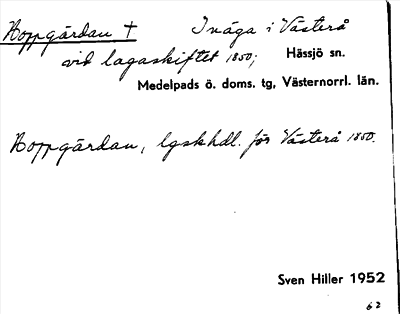 Koppgärdan † Inäga i Västerå
vid lagaskiftet 1850; Hässjö sn.
Medelpads ö. doms. tg, Västernorrl. län.
Koppgärdan, lgskhdl. för Västerå 1850.
Sven Hiller 1952
62